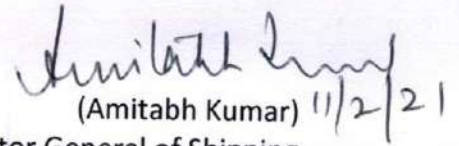 Amitabh Kumar
(Amitabh Kumar) 11/2/21
tor General of Shipping